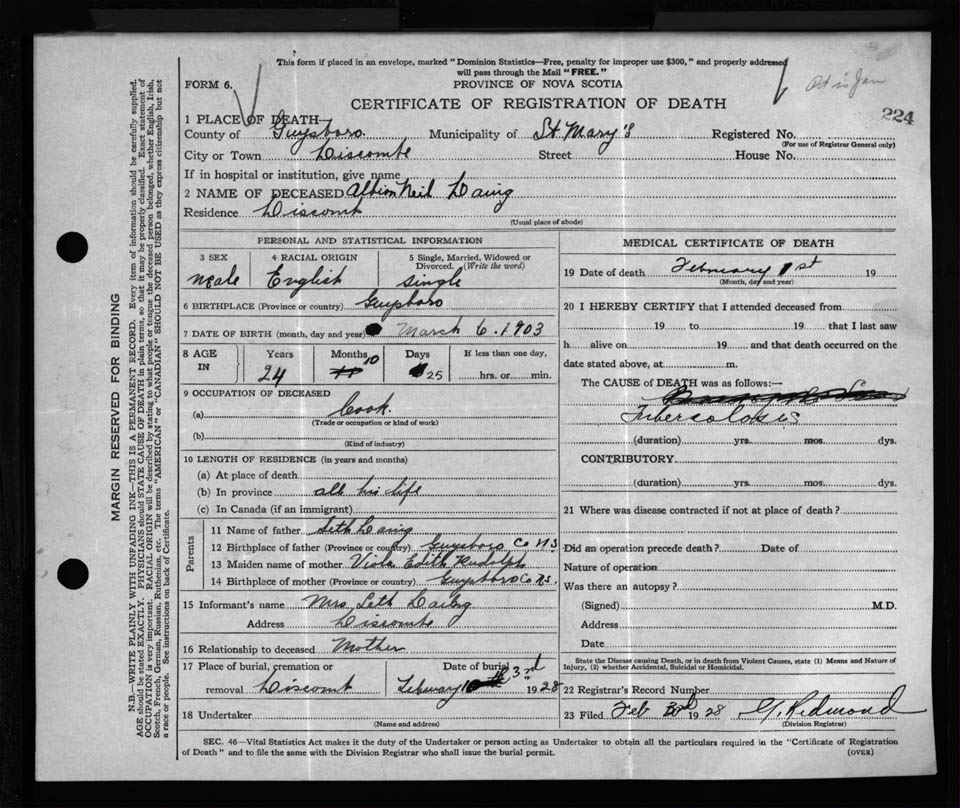 This form if placed in an envelope, marked "Dominion Statistics—Free, penalty for improper use $300," and properly addressed
will pass through the Mail "FREE."
FORM 6.
PROVINCE OF NOVA SCOTIA
CERTIFICATE OF REGISTRATION OF DEATH
224
1 PLACE OF DEATH
County of Guysboro Municipality of St Mary's Registered No.
(For use of Registrar General only)
City or Town Liscombe Street House No.
If in hospital or institution, give name
2 NAME OF DECEASED Albion Neil Laing
Residence Liscomb
(Usual place of abode)
PERSONAL AND STATISTICAL INFORMATION
3 SEX 4 RACIAL ORIGIN 5 Single, Married, Widowed or Divorced. (Write the word)
Male English Single
6 BIRTHPLACE (Province or country) Guysboro
7 DATE OF BIRTH (month, day and year) March 6. 1903
8 AGE IN Years Months Days If less than one day,
24 10 25 hrs. or min.
9 OCCUPATION OF DECEASED
(a) Cook
(Trade or occupation or kind of work)
(b)
(Kind of industry)
10 LENGTH OF RESIDENCE (in years and months)
(a) At place of death
(b) In province all his life
(c) In Canada (if an immigrant)
Parents
11 Name of father Seth Laing
12 Birthplace of father (Province or country) Guysboro Co NS
13 Maiden name of mother Viola Edith Rudolph
14 Birthplace of mother (Province or country) Guysboro Co NS.
15 Informant's name Mrs Seth Laing
Address Liscombe
16 Relationship to deceased Mother
17 Place of burial, cremation or Date of burial
removal Liscomb 3rd 1928
18 Undertaker
(Name and address)
MEDICAL CERTIFICATE OF DEATH
19 Date of death February 1st 19
(Month, day and year)
20 I HEREBY CERTIFY that I attended deceased from
19 to 19 that I last saw
h alive on 19 and that death occurred on the
date stated above, at m.
The CAUSE of DEATH was as follows:—
Tuberculosis
(duration) yrs. mos. dys.
CONTRIBUTORY
(duration) yrs. mos. dys.
21 Where was disease contracted if not at place of death?
Did an operation precede death? Date of
Nature of operation
Was there an autopsy?
(Signed) M.D.
Address
Date
State the Disease causing Death, or in death from Violent Causes, state (1) Means and Nature of
Injury, (2) whether Accidental, Suicidal or Homicidal.
22 Registrar's Record Number
23 Filed Feb 1928 Redmond
(Division Registrar)
SEC. 46—Vital Statistics Act makes it the duty of the Undertaker or person acting as Undertaker to obtain all the particulars required in the "Certificate of Registration
of Death" and to file the same with the Division Registrar who shall issue the burial permit.
(OVER)
MARGIN RESERVED FOR BINDING
N.B.—WRITE PLAINLY WITH UNFADING INK—THIS IS A PERMANENT RECORD. Every item of information should be carefully supplied.
AGE should be stated EXACTLY. PHYSICIANS should STATE CAUSE OF DEATH in plain terms, so that it may be properly classified. Exact statement of
OCCUPATION is very important. RACIAL ORIGIN will be described by stating to what people or tongue the deceased person belonged, whether English, Irish,
Scotch, French, German, Russian, Ruthenian, etc. The terms "AMERICAN" or "CANADIAN" SHOULD NOT BE USED as they express citizenship but not
a race or people. See instructions on back of Certificate.